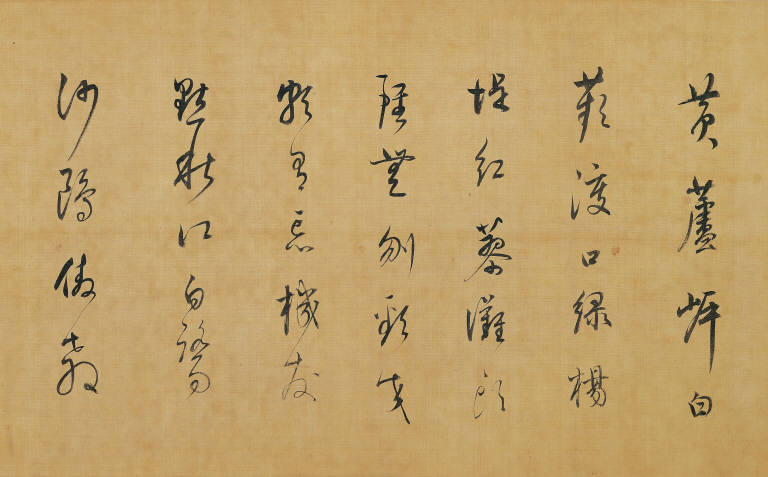 黃蘆岸白
蘋渡口綠楊
堤紅蓼灘頭
雖無刎頸交
卻有忘機友
點秋江白鷺
沙鷗傲殺